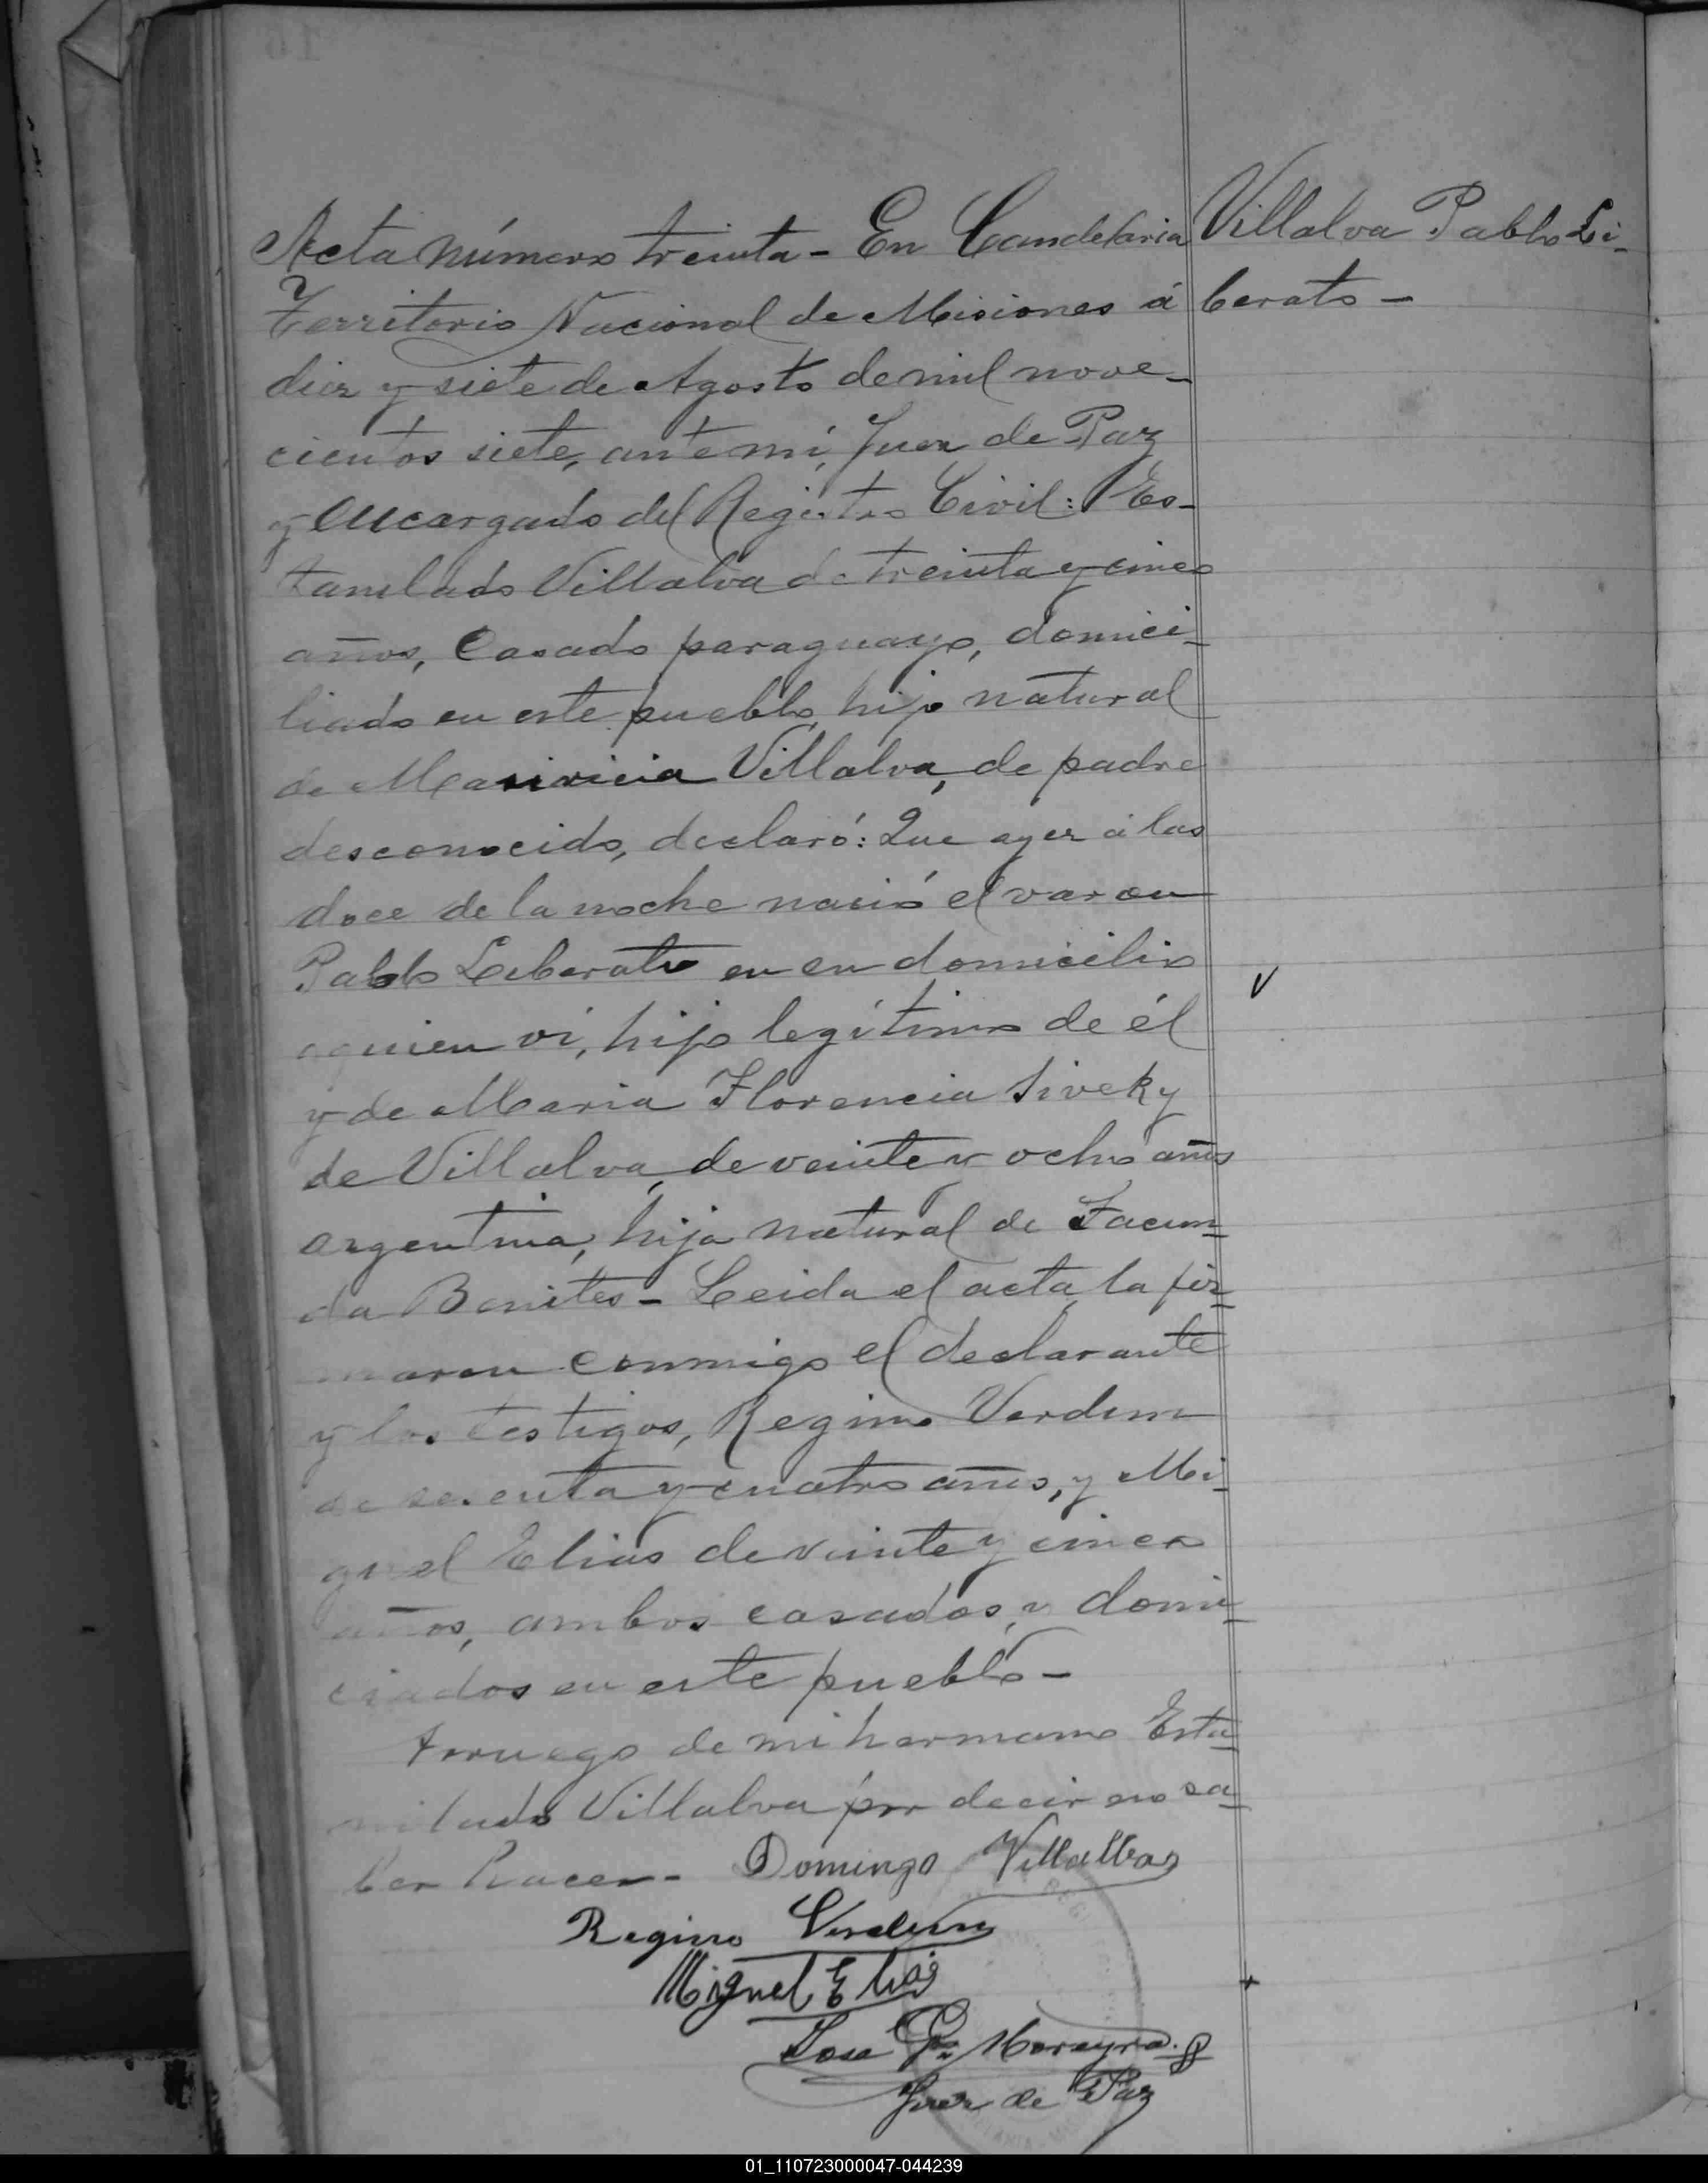 Acta número treinta - En Candelaria
Villalva Pablo Li-
berato -
Territorio Nacional de Misiones á
diez y siete de Agosto de mil nove-
cientos siete, ante mi, Juez de Paz
y Encargado del Registro Civil: Es-
tanilado Villalva de treinta y cinco
años, Casado paraguayo, domici-
liado en este pueblo, hijo natural
de Villalva, de padre
desconocido, declaró: Que ayer á las
doce de la noche nació el varon
Pablo Liberato en su domicilio
aquien vi, hijo legítimo de él
y de Maria Florencia Siveky
de Villalva, de veinte y ocho años
argentina, hija natural de Facun-
da Benites - Leida el acta, la fir-
maron conmigo el declarante
y los testigos, Regino Verdun
de sesenta y cuatro años, y Mi-
guel Elias de veinte y cinco
años, ambos casados, y domi-
ciados en este pueblo -
A ruego de mi hermano Esta-
nilado Villalva por decir no sa-
ber hacer - Domingo Villalba
Regino Verdun
Miguel Elias
Jose Moreyra
Juez de Paz
01_110723000047-044239